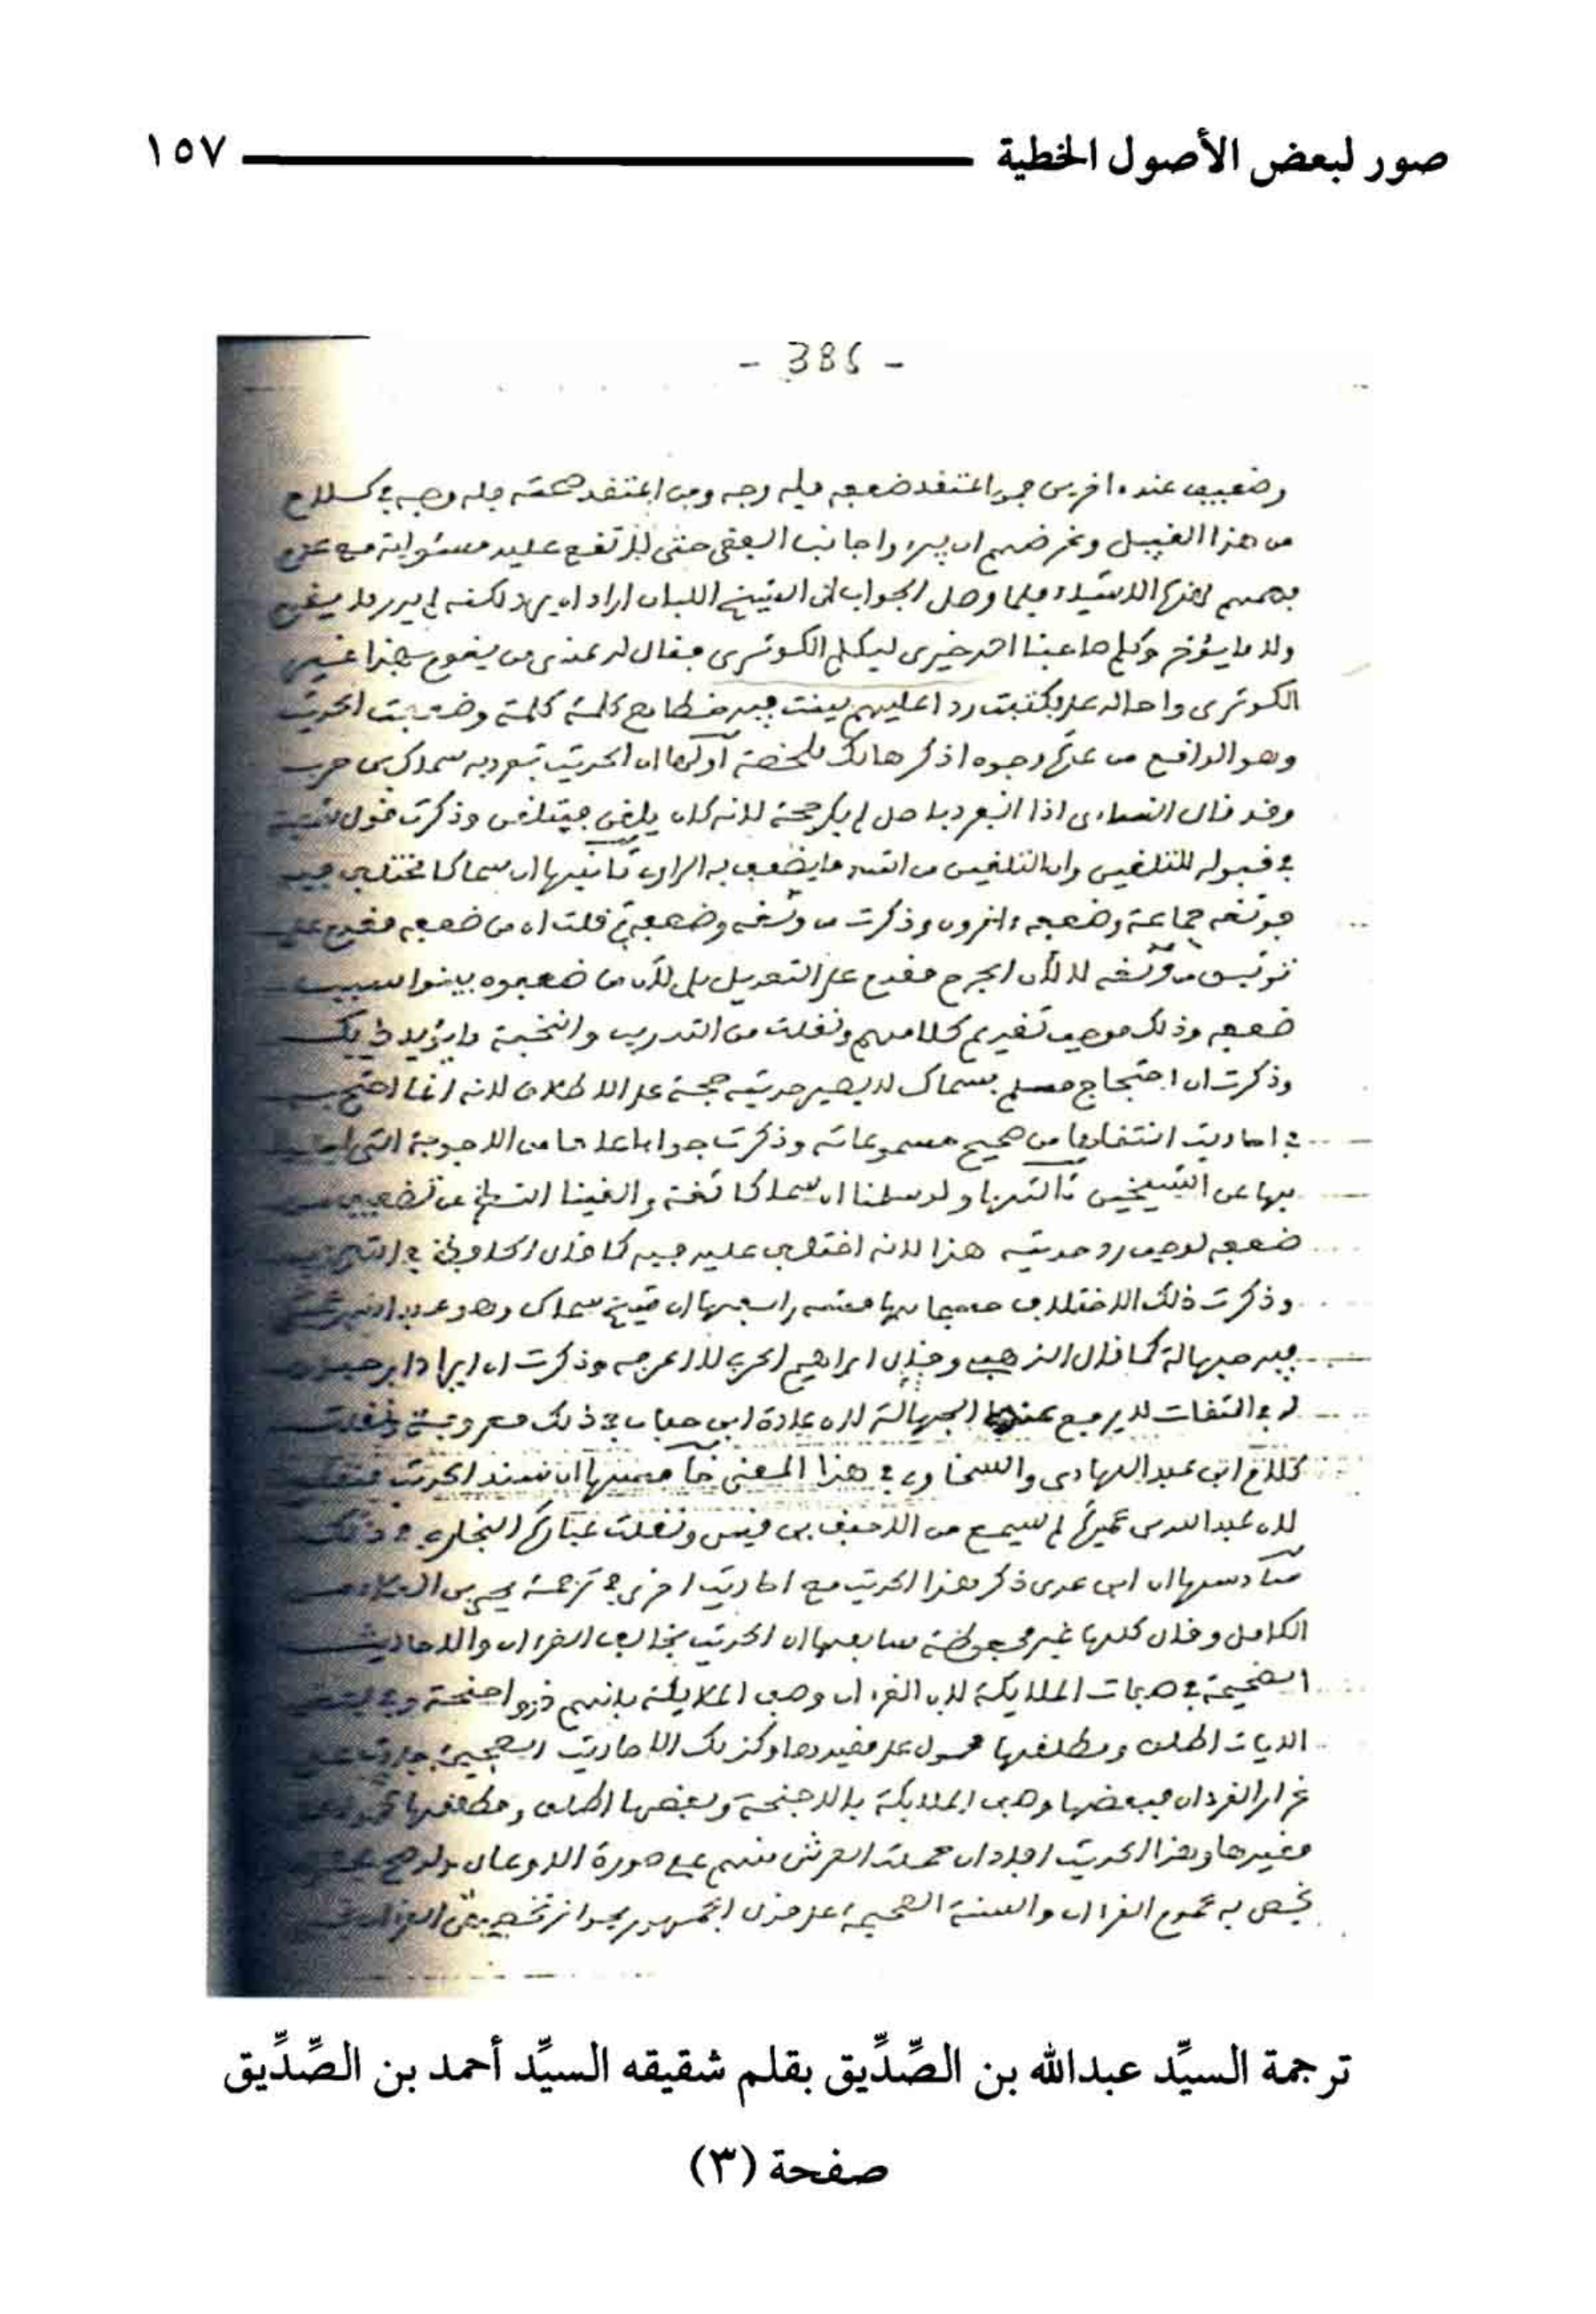 صور لبعض الأصول الخطية ١٥٧
- 386 -
وضعيف عند ءاخرين فمن اعتقد ضعفه فله وجه ومن اعتقد صحته فله وجه في كلام
من هذا القبيل وغرضهم ان يبرءوا جانب حتى لا تقع عليه مسئولية مع عدم
فهمهم لهذه الاشياء فلما وصل الجواب الى الشيخ اللبان اراد ان يرد لكنه لم يدر ما يقدم
ولا ما يؤخر وكلم صاحبنا احمد خيرى ليكلم الكوثرى فقال له عندى من يقوم بهذا غيرى
الكوثرى واحاله على فكتبت ردا عليهم بينت فيه خطأهم كلمة كلمة وضعفت الحديث
وهو الواقع من عدة وجوه اذكرها لك ملخصة أولها ان الحديث تفرد به سماك بن حرب
وقد قال النساءى اذا انفرد باصل لم يكن حجة لانه كان يلقن فيتلقن وذكرت قول شعبة
في قبوله للتلقين وان التلقين من اشد ما يضعف به الراوى ثانيها ان سماكا مختلف فيه
فوثقه جماعة وضعفه ءاخرون وذكرت من وثقه وضعفه ثم قلت ان من ضعفه مقدم على
توثيق من وثقه لا لأن الجرح مقدم على التعديل بل لأن من ضعفوه بينوا سبب
ضعفه وذلك موجب تقديم كلامهم ونقلت من التدريب والنخبة ما يؤيد ذلك
وذكرت ان احتجاج مسلم بسماك لا يصير حديثه حجة على الاطلاق لانه انما احتج به
في احاديث انتقاها من صحيح مسموعاته وذكرت جوابا عاما من الاجوبة التى اجابوا
بها عن الشيخين ثالثها ولو سلمنا ان سماكا ثقة والغينا النظر عن تضعيف من
ضعفه لوجب رد حديثه هذا لانه اختلف عليه فيه كما قال الحافظ في التهذيب
وذكرت ذلك الاختلاف رابعها ان شيخ سماك وهو عبد الله بن عميرة
فيه جهالة كما قال الذهبي وقال ابراهيم الحربى لا اعرفه وذكرت ان ايراد ابن حبان
له في الثقات لا يرفع عنه الجهالة لان عادة ابن حبان في ذلك معروفة ونقلت
كلام ابن عبد الهادى والسخاوى في هذا المعنى خامسها ان سند الحديث منقطع
لان عبد الله بن عميرة لم يسمع من الاحنف بن قيس ونقلت عبارة البخارى في ذلك
سادسها ان ابن عدى ذكر هذا الحديث مع احاديث اخرى في ترجمة يحيى بن العلاء من
الكامل وقال كلها غير محفوظة سابعها ان الحديث يخالف القرءان والاحاديث
الصحيحة في صفات الملايكة لان القرءان وصف الملايكة بانهم ذوو اجنحة وفي بعض
الايات اطلق ومطلقها محمول على مقيدها وكذلك الاحاديث الصحيحة جاءت على
غرار القرءان فبعضها وصف الملايكة بالاجنحة وبعضها اطلق ومطلقها محمول على
مقيدها وهذا الحديث افاد ان حملة العرش منهم على صورة الاوعال ولا يصح
يخص به عموم القرءان والسنة الصحيحة على قول الجمهور بجواز تخصيص القرءان
ترجمة السيِّد عبدالله بن الصِّدِّيق بقلم شقيقه السيِّد أحمد بن الصِّدِّيق
صفحة (٣)